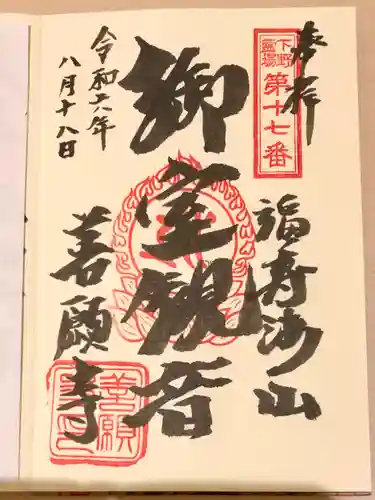 奉拝
下野
霊場
第十七番
福寿海山
御室観音
善願寺
令和六年
八月十八日
善願